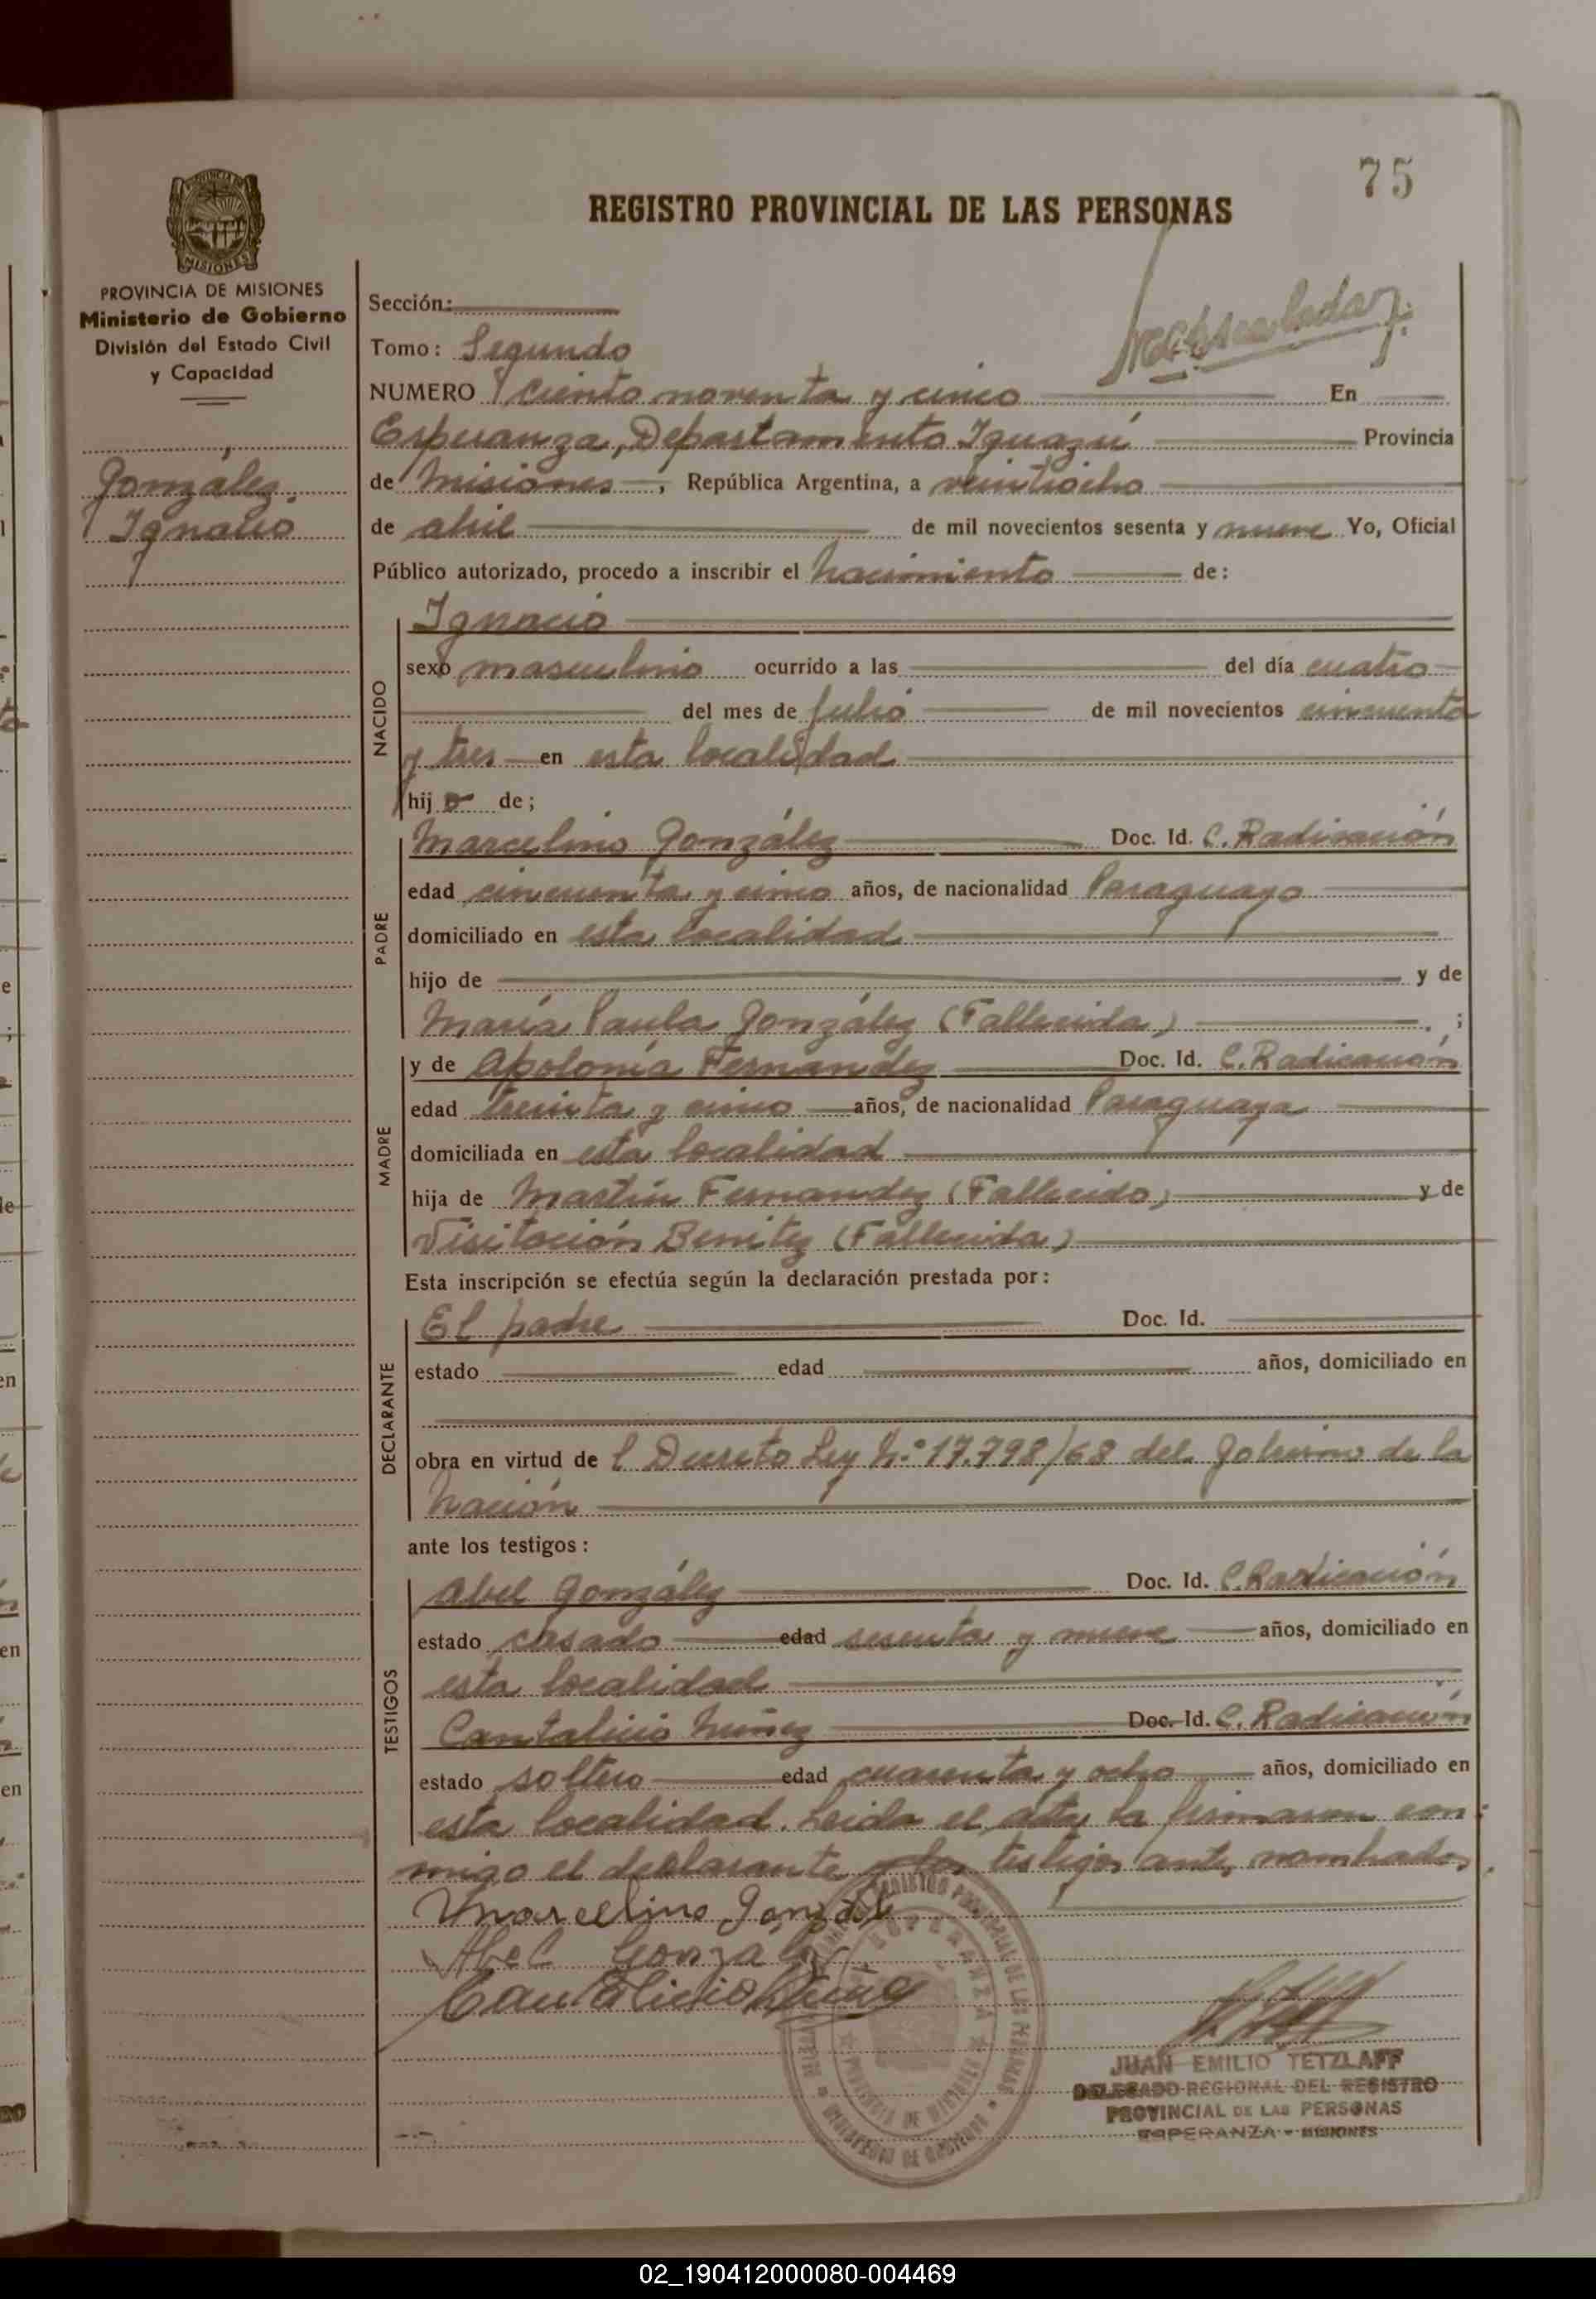 75
REGISTRO PROVINCIAL DE LAS PERSONAS
PROVINCIA DE MISIONES
Ministerio de Gobierno
División del Estado Civil
y Capacidad
González,
Ignacio
Sección:
Tomo: Segundo
NUMERO ciento noventa y cinco En
Esperanza, Departamento Iguazú Provincia
de Misiones, República Argentina, a veintiocho
de abril de mil novecientos sesenta y nueve Yo, Oficial
Público autorizado, procedo a inscribir el nacimiento de:
NACIDO
Ignacio
sexo masculino ocurrido a las del día cuatro
del mes de Julio de mil novecientos cincuenta
y tres en esta localidad
hij o de;
PADRE
Marcelino González Doc. Id. C. Radicación
edad cincuenta y cinco años, de nacionalidad Paraguayo
domiciliado en esta localidad
hijo de y de
María Paula González (Fallecida) ;
MADRE
y de Apolonia Fernandez Doc. Id. C. Radicación
edad treinta y cinco años, de nacionalidad Paraguaya
domiciliada en esta localidad
hija de Martín Fernandez (Fallecido) y de
Visitación Benitez (Fallecida)
Esta inscripción se efectúa según la declaración prestada por:
DECLARANTE
El padre Doc. Id.
estado edad años, domiciliado en
obra en virtud de l Decreto Ley N.º 17.798/68 del Gobierno de la
Nación
ante los testigos:
TESTIGOS
Abel González Doc. Id. C. Radicación
estado casado edad sesenta y nueve años, domiciliado en
esta localidad
Cantalicio Nuñez Doc. Id. C. Radicación
estado soltero edad cuarenta y ocho años, domiciliado en
esta localidad. Leida el acta la firmaron con-
migo el declarante y los testigos antes nombrados.
Marcelino Gonzál
Abel Gonzalez
Cantalicio Nuñez
ESPERANZA
PROVINCIA DE MISIONES
MINISTERIO DE GOBIERNO
JUAN EMILIO TETZLAFF
DELEGADO REGIONAL DEL REGISTRO
PROVINCIAL DE LAS PERSONAS
ESPERANZA - MISIONES
02_190412000080-004469